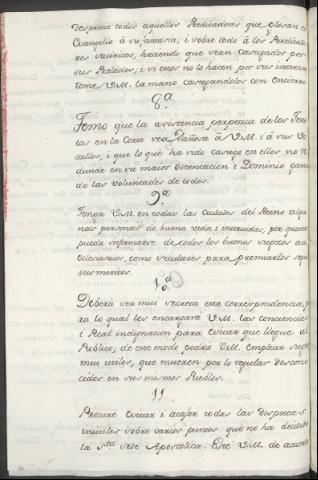 desprecie todos aquellos Predicadores que glosan el
Evangelio à su manera; i sobre todo à los Predicado
res satiricos, haciendo que sean castigados por
sus Prelados; i si estos no lo hacen por sus interes
tome V.M. la mano castigandolos con encierro
8.ª
Temo que la asistencia perpetua de los
tas en la Corte sea dañosa à V.M. i à sus Va
sallos, i que lo que ha sido en ellos, re
dunde en su maior ostentacion i Dominio ganan
do las voluntades de todos.
9.ª
Tenga V.M. en todas las Ciudades del Reino algu
nas personas de buena vida i instruidas, por quienes
pueda informarse de todos los buenos sugetos asi
Eclesiasticos, como seculares para premiarlos segun
sus meritos.
10.ª
Deberà ser mui secreta esta correspondencia, pa
ra lo qual les encargarà V.M. las conciencias
i Real indignacion para evitar que llegue al
Publico, de este modo podrà V.M. emplear sugetos
mui utiles, que mueren por lo regular descono
cidos en sus mismos Pueblos.
11.
Procure evitar i atajar todas las disputas
inutiles sobre varios puntos que no ha decidido
la S.ta Sede Apostolica. Estè V.M. de acuerdo